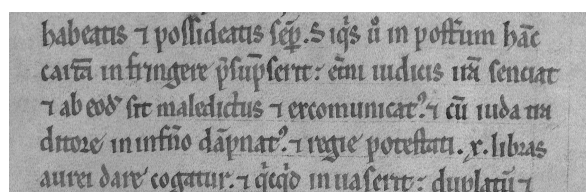 habeatis ⁊ possideatis sēp̄. Si q̇s ů in post̄um hāc
cartā infringere p̄sūpserit: et̄ni iudicis irā senciat
⁊ ab eod̄ sit maledictus ⁊ excomunicatꝰ. ⁊ cū iuda tra
ditore in inf̄no dāpnatꝰ. ⁊ regie potestati. x. libras
aurei dare cogatur. ⁊ q̇cq̇d inuaserit: duplatū ⁊